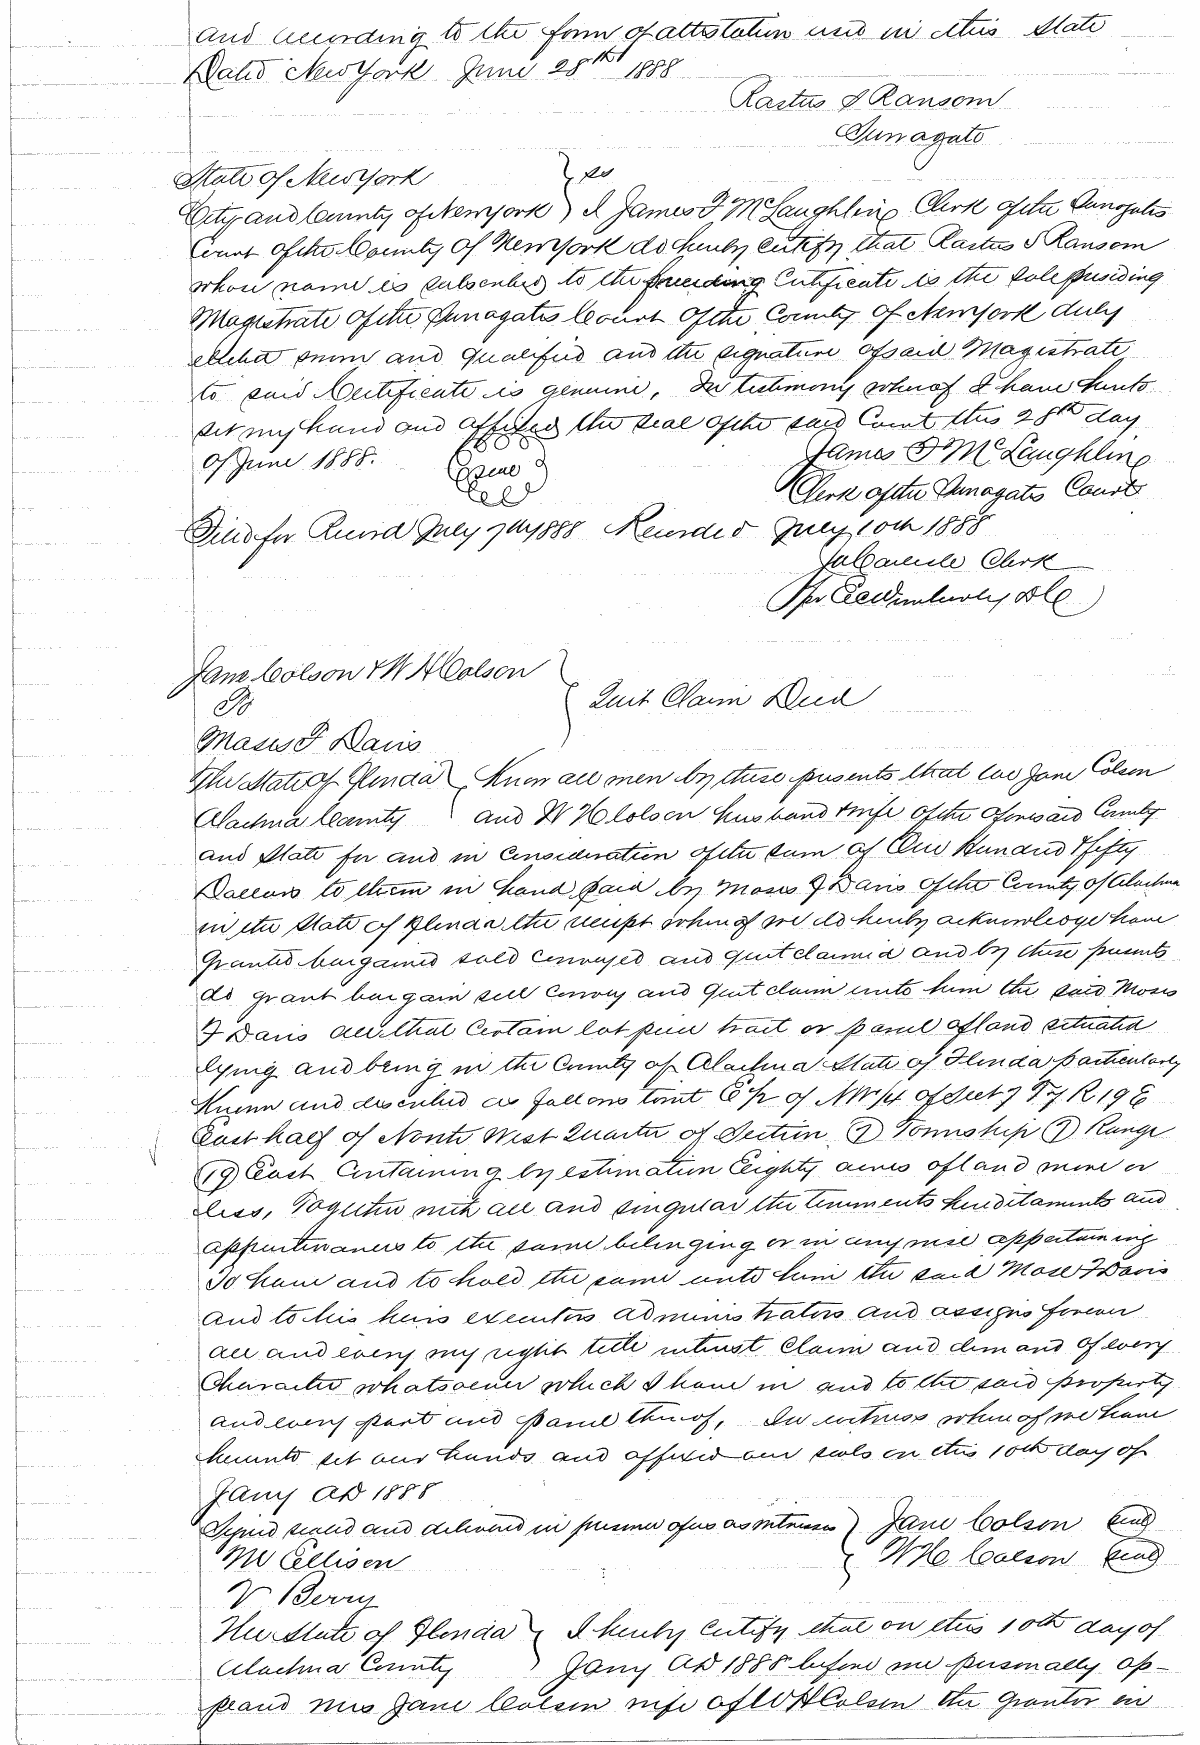 and according to the form of attestation used in this State
Dated New York June 28th 1888
Rastus S Ransom
Surrogate
State of New York } ss
City and County of New York ) I James F McLaughlin Clerk of the Surrogates
Court of the County of New York do hereby certify that Rastus S Ransom
whose name is subscribed to the preceding Certificate is the sole presiding
Magistrate of the Surrogates Court of the County of New York duly
elected sworn and qualified and the signature of said Magistrate
to said Certificate is genuine, In testimony whereof I have hereto
set my hand and affixed the seal of the said Court this 28th day
of June 1888.
James F McLaughlin
Clerk of the Surrogates Court
Filed for Record July 7th 1888 Recorded July 10th 1888
Clerk
Per DC
Jane Colson & W H Colson }
To { Quit Claim Deed
Moses F Davis
The State of Florida } Know all men by these presents that we Jane Colson
Alachua County { and W H Colson husband & wife of the aforesaid County
and State for and in consideration of the sum of One Hundred & fifty
Dollars to them in hand paid by Moses F Davis of the County of Alachua
in the State of Florida the receipt whereof we do hereby acknowledge have
Granted bargained sold conveyed and quit claimed and by these presents
do grant bargain sell convey and quit claim unto him the said Moses
F Davis all that certain lot piece tract or parcel of land situated
lying and being in the County of Alachua State of Florida particularly
Known and described as follows towit E ½ of NW ¼ of Sect 7 T 7 R 19 E
East half of North West Quarter of Section (7) Township (7) Range
(19) East Containing by estimation Eighty acres of land more or
less, Together with all and singular the tenements hereditaments and
appurtenances to the same belonging or in any wise appertaining
To have and to hold the same unto him the said Mose F Davis
and to his heirs executors administrators and assigns forever
all and every my right title interest claim and demand of every
Character whatsoever which I have in and to the said property
and every part and parcel thereof, In witness whereof we have
hereunto set our hands and affixed our seals on this 10th day of
Jany AD 1888
Signed sealed and delivered in presence of us as witnesses } Jane Colson (seal)
M Ellison { W H Colson (seal)
V Berry
The State of Florida } I hereby certify that on this 10th day of
Alachua County ) Jany AD 1888 before me personally ap-
peard Mrs Jane Colson wife of W H Colson the Grantor in